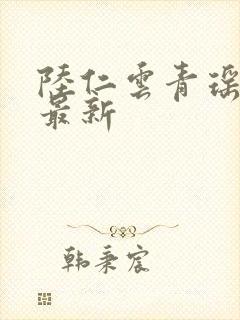 陸仁雲青瑶
最新
韩秉宸